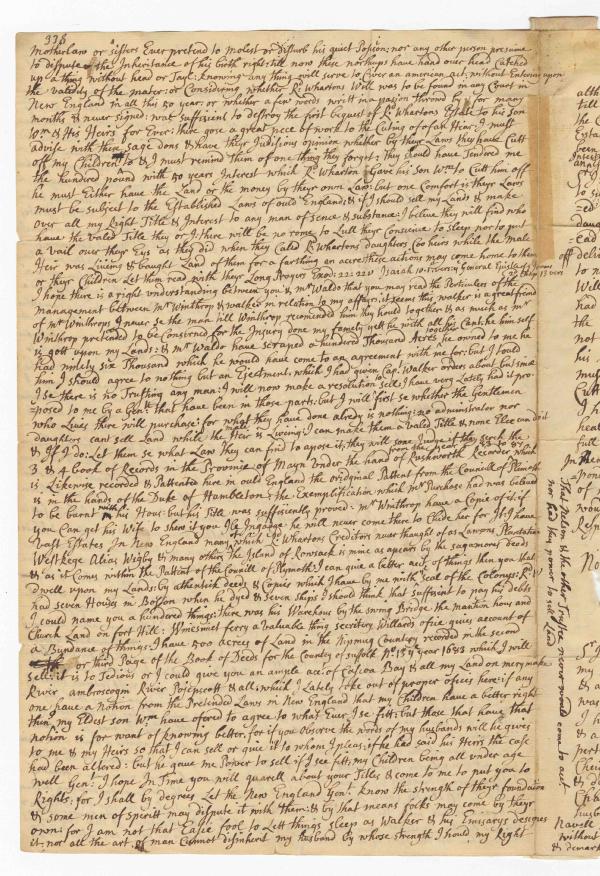 336
Motherlaw or sisters Ever pretend to molest or disturb his quiet Posion: nor any other person presume
to dispute the Inheritance of his birth right: till now these northups have hand over head Catched
up a thing without head or Tayl: knowing any thing will serve to Cover an american act: without Entering upon
the validity of the mater: or Considering whether Rd Whartons Will was to be found in any Court in
New England in all this 50 year or whether a few words writt in a pation throwd by for many
months & never signed: was sufficient to destroy the first bequest of Rd Whartons Estate to his Son
Wm & His Heirs for Ever: there gose a great pece of work to the Cuting of of an Hear: I must
advise with these Sage dons & have theyr Judisious opinion whether by theyr Laws they have Cutt
off my Children to & I must remind them of one thing they forget: they should have Tendred me
the hundred pound with 50 years Interest which Rd Wharton Gave his Son Wm to Cutt him off
he must Either have the Land or the money by theyr own Law: but one Comfort is theyr Laws
must be subject to the Established Laws of ould England: & if I should sell my Lands & make
over all my Right Title & Interest to any man of sence & substance: I believe they will find who
have the valed Title they or I: there will be no rome to Lull theyr Consience to sleep nor to put
a vail over theyr Eys as they did when they Caled Rd Whartons daughters Coo heirs while the Male
Heir was Liveing & bought Land of them for a farthing an acre these actions may come home to them
or theyr Children Let them read with theyr Long prayers Exod: 22: 22 v Isaiah 10:
I hope there is a right understanding between you & Mr Waldo that you may read the Perticulers of the
management between Mr Winthrop & walker in relation to my affayrs it seems this walker is a great frend
of mr Winthrops I never se the man till Winthrop recomended him they hould together & as much as mr
Winthrop pretended to be Consirned for the Injury done my famely yett he with all his Cant: he him self
is gott upon my Lands: & Mr Waldo have scraped a hundred Thousand Acres together he owned to me he
had ninety six Thousand which he would have come to an agreement with me for: but I tould
him I should agree to nothing but an Ejectment, which I had given Capt Walker orders about but since
I se there is no Trusting any man: I will now make a resolution to sele: I have very Lately had it pro-
=posed to me by a Gent: that have been in those parts: but I will first se whether the Gentlemen
who Lives there will purchase: for what they have done alredy is nothing: no administrator nor
daughters cant sell Land while the Heir is Liveing: I can make them a valed Title & none Else can doit
& If I do: Let them se what Law they can find to apose it: they will soon Judge if they see the
3 & 4 book of Records in the Provinse of Mayn under the hand of Rushworth Recorder which
is Likewise recorded & Pattented here in ould England the origginal Pattent from the Councile of Plimoth
is in the hands of the Duke of Hambleton: the Exemplification which mr Purchase had was beleved
to be burnt with his Hous: but his Title was sufficiently proved: mr Winthrop have a Copie of it: if
you Can get his Wife to shew it you Ile Ingadge he will never come there to Chide her for it: I have
Vast Estates In New England many of which Rd Whartons Creditors never thought of as Lawsons Plantation
Westkege Alias Wigby & many others The Island of Rowsack is mine as apears by the sagamores deeds
& as it comes within the Pattent of the Councill of Plymoth: I can give a better acct of things then you that
dwell upon my Lands: by athentick deeds & Copies which I have by me with seal of the Colonys: Rd W
had seven Houses in Boston when he dyed & seven ships I should think that suffitent to pay his debts
I could name you a hundred things: there was his Warehous by the swing Bridge the mantion hous and
Church Land on fort Hill: Winesimet ferry a Valuable thing secretary Willards ofice gives account of
a Bundance of things: I have 500 acres of Land in the Nipmug Countery recorded in the second
or third Paige of the Book of Deeds for the County of suffolk No 13: year 1683 which I will
sell: it is to Tedious or I could give you an ample acct: of Casco Bay & all my Land on merymake
River ambroscogin River Pojepscott & all: which I Lately toke out of proper ofices here: if any
one have a notion from the Pretended Laws in New England that my Children have a better right
then I: my Eldest son Wm have ofered to agree to what Ever I se fitt: but those that have that
notion is for want of knowing better, for if you observe the words of my husbands will he gives
to me & my Heirs so that I can sell or give it to whom I pleas: if he had said his Heirs the case
had been altered: but he gave me Power to sell if I see fitt: my Children being all under age
well Gent! I hope In Time you will quarell about your Titles & come to me to put you to
Rights: for I shall by degrees Let the New England Gent: know the strength of theyr foundation
& some men of Speritt may dispute it with them: & by that means focks may come by theyr
own: for I am not that Easie fool to Lett things sleep as Walker & his Emisarys designes
it: nor all the art of man Cannot disinherit my husband by whose strength I hould my Right
That Nelson & the other Trustee never would come to act
nor had they power to sell Land